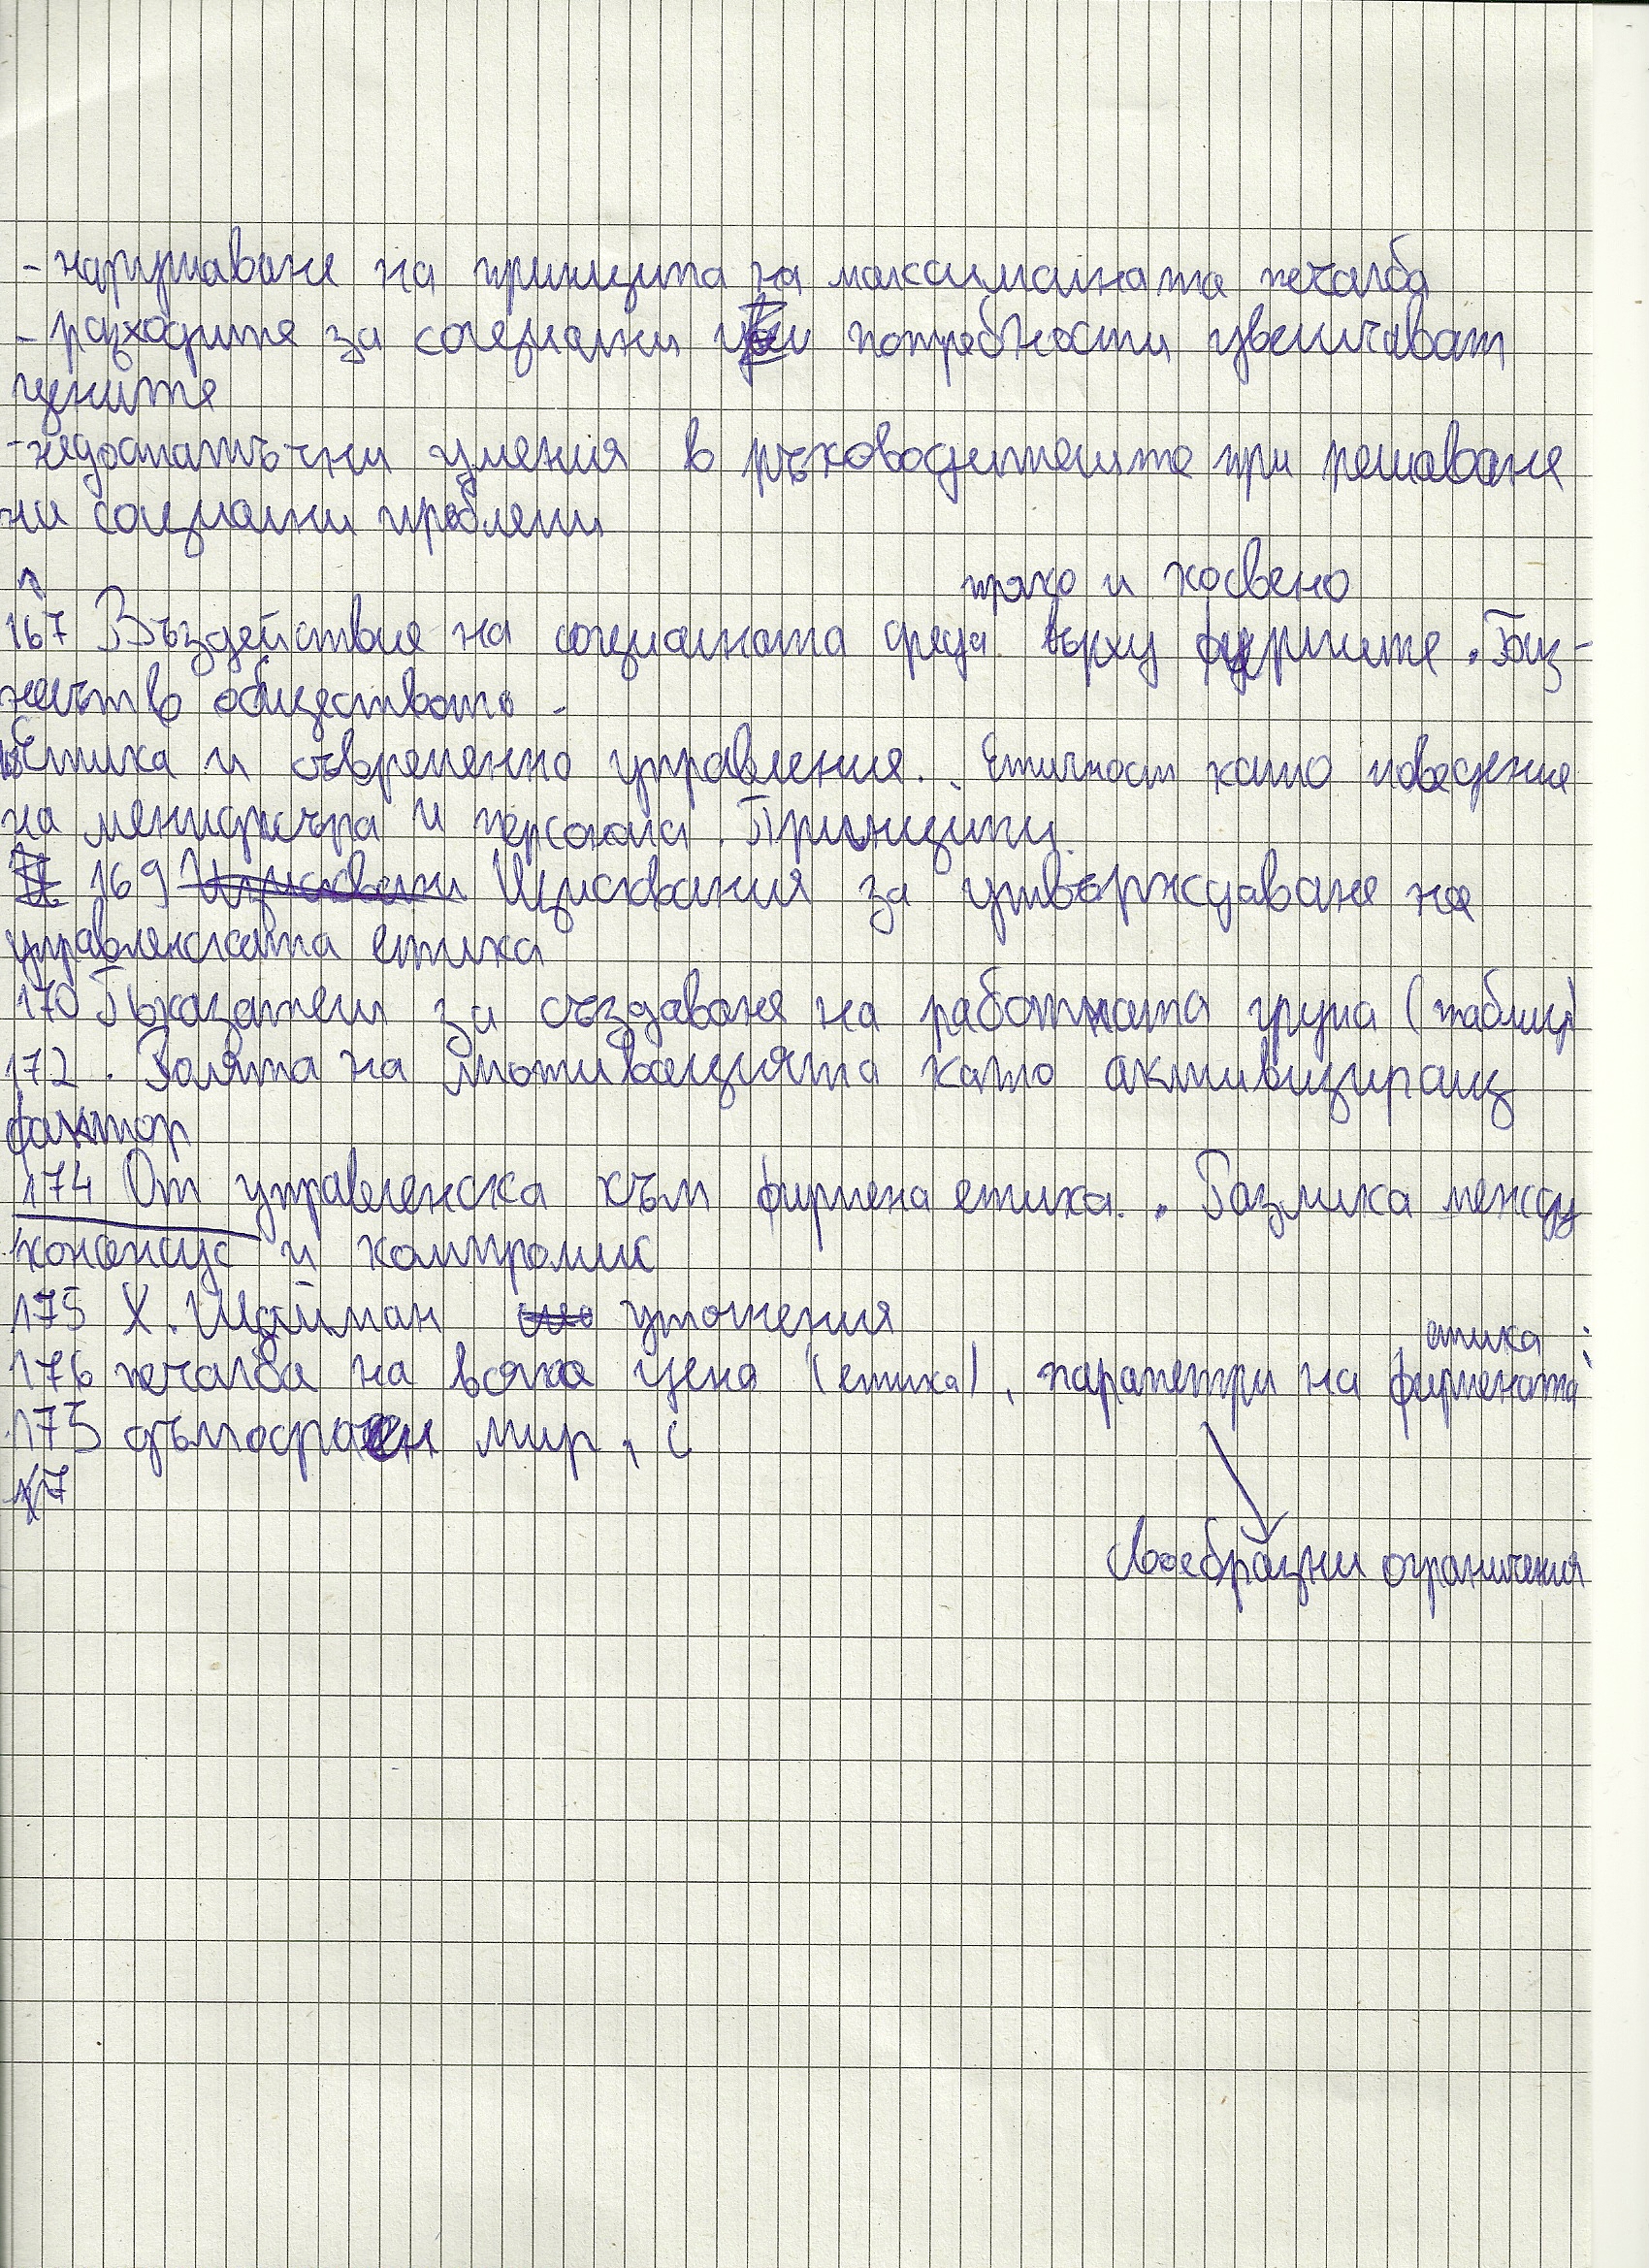 - нарушаване на принципа на максималната печалба
- разходите за социални потребности увеличават
цените
- недостатъчни умения в ръководителите при решаване
на социални проблеми
пряко и косвено
167 Въздействие на социалната среда върху фирмите. Биз-
несът в обществото -
168 Етика и съвременно управление. Етичност като поведение
на мениджъра и персонала. Принципи
169 Изисквания за утвърждаване на
управленската етика
170 Показатели за създаване на работната група (таблица)
172. Ролята на мотивацията като активизиращ
фактор
174 От управленска към фирмена етика. Разлика между
консенсус и компромис
175 Х. Шайман уточнения
етика :
176 печалба на всяка цена (етика), параметри на фирмената
175 дългосрочен мир, с
177
своеобразни ограничения